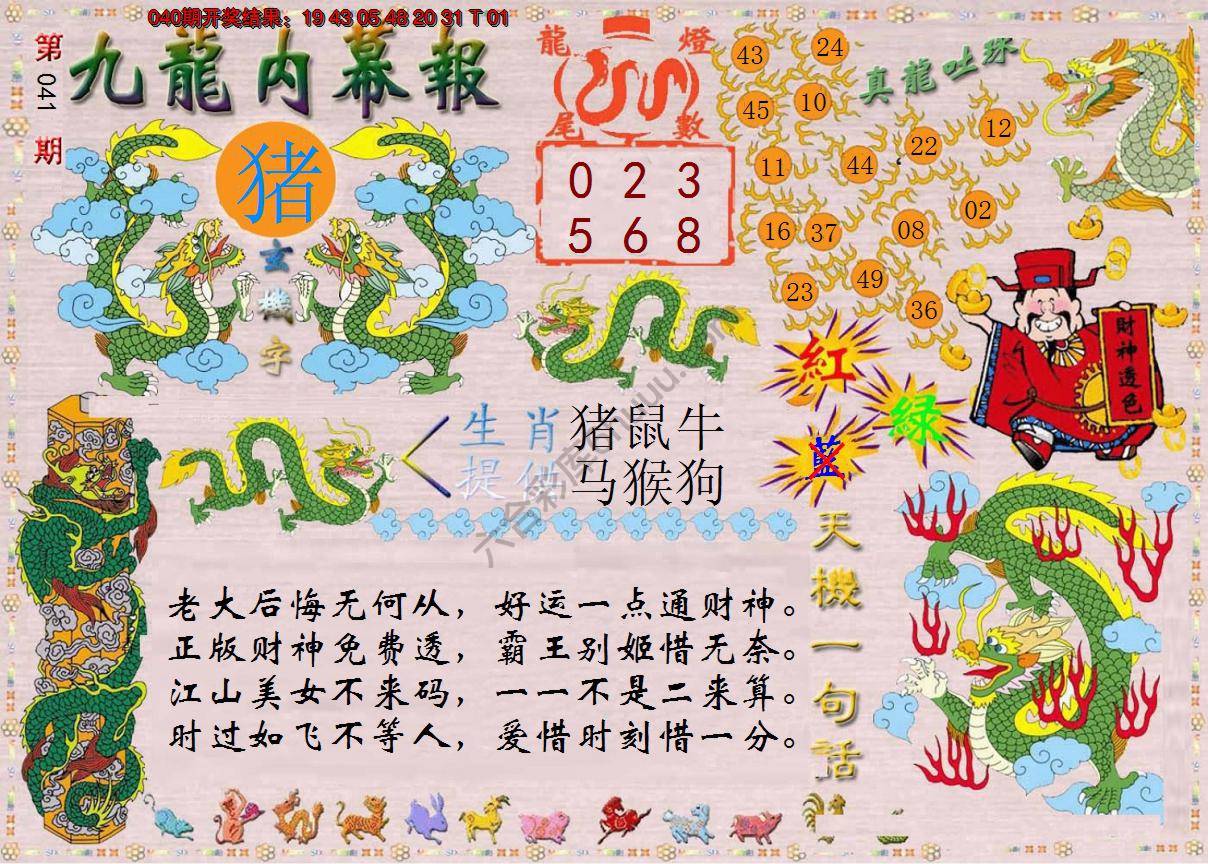 040期开奖结果：19 43 05 48 20 31 T 01
第041期
九龍内幕報
猪
玄機字
龍燈
尾數
0 2 3
5 6 8
真龍吐珠
43 24
45 10
12
22
11 44
02
16 37 08
49
23
36
財神透色
紅
綠
藍
生肖 猪鼠牛
提供 马猴狗
天機一句話
老大后悔无何从，好运一点通财神。
正版财神免费透，霸王别姬惜无奈。
江山美女不来码，一一不是二来算。
时过如飞不等人，爱惜时刻惜一分。